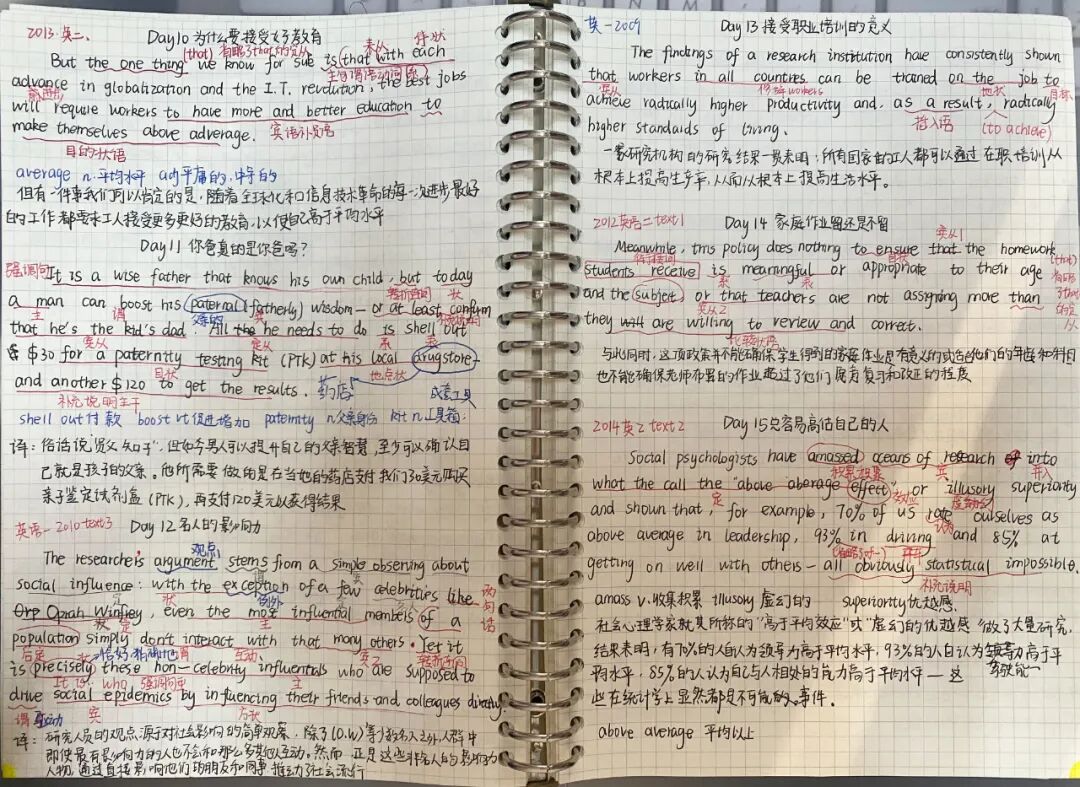 2013·英二、 Day10 为什么要接受女子教育
(that) 省略了that的定从 表从 伴状
But the one thing we know for sure is that with each
主句谓语动词
advance in globalization and the I.T. revolution, the best jobs
will require workers to have more and better education to
make themselves above adverage. 宾语补足语
目的状语
average n.平均水平 adj平庸的,中等的
但有一件事我们可以肯定的是,随着全球化和信息技术革命的每一次进步最好
的工作都要求工人接受更多更好的教育,以便自己高于平均水平
Day 11 你爸真的是你爸吗?
强调句 It is a wise father that knows his own child, but today
a man can boost his paternal (fatherly) wisdom — or at least confirm
主 谓 父亲的
that he's the kid's dad. All the he needs to do is shell out
宾从 定从 系 表
$30 for a paternity testing kit (PTK) at his local drugstore
and another $120 to get the results. 药店
目状 地点状
补充说明主干
shell out 付款 boost vt 促进增加 paternity n父亲身份 kit n工具箱;成套工具
译:俗话说"贤父知子",但如今男人可以提升自己的父亲智慧,至少可以确认自
己就是孩子的父亲。他所需要做的是在当地的药店支付我们30美元购买
亲子鉴定试剂盒(PTK),再支付120美元以获得结果
英语一2010 text3 Day 12 名人的影响力
观点
The researche's argument stems from a simple observing about
social influence: with the exception of a few celebrities like
状 例外 两句话
Oprah Winfrey, even the most influential members of a
population simply don't interact with that many others. Yet it
互动 转折连词
is precisely these non-celebrity influentials who are supposed to
It is who 强调句型 主
drive social epidemics by influencing their friends and colleagues directly
谓 宾 方状
译:研究人员的观点源于对社会影响的简单观察,除了(O.W)等少数名人之外,人群中
即使最有影响力的人也不会和那么多其他人互动。然而,正是这些非名人的影响力
人物,通过直接影响他们的朋友和同事,推动了社会流行
英一2009 Day 13 接受职业培训的意义
The findings of a research institution have consistently shown
that workers in all countries can be trained on the job to
宾从 修饰workers 地状 目状
achieve radically higher productivity and, as a result, radically
插入语 (to achieve)
higher standards of living.
一家研究机构的研究结果一贯表明:所有国家的工人都可以通过在职培训从
根本上提高生产率,从而从根本上提高生活水平。
2012英语二text1 Day 14 家庭作业留还是不留
宾从1
Meanwhile, this policy does nothing to ensure that the homework
(that) 省略了that的定从
students receive is meaningful or appropriate to their age
系 表
and the subject or that teachers are not assigning more than
宾从2
they will are willing to review and correct.
比较状语
与此同时,这项政策并不能确保学生得到的家庭作业是有意义的或适合他们的年龄和科目
也不能确保老师布置的作业超过了他们愿意复习和改正的程度
2014英2 text2 Day 15 只容易高估自己的人
Social psychologists have amassed oceans of research into
积累收集 宾
what the call the "above aberage effect", or illusory superiority
效应 虚幻的
and shown that, for example, 70% of us rate ourselves as
定 认为
above average in leadership, 93% in driving and 85% at
getting on well with others — all obviously statistical impossible.
补充说明
amass v.收集积累 illusory 虚幻的 superiority优越感
社会心理学家就其所称的"高于平均效应"或"虚幻的优越感"做了大量研究,
结果表明,有70%的人自认为领导力高于平均水平,93%的人自认为驾驶能力高于平
均水平,85%的人认为自己与人相处的能力高于平均水平——这
些在统计学上显然都是不可能的事件。
above average 平均以上